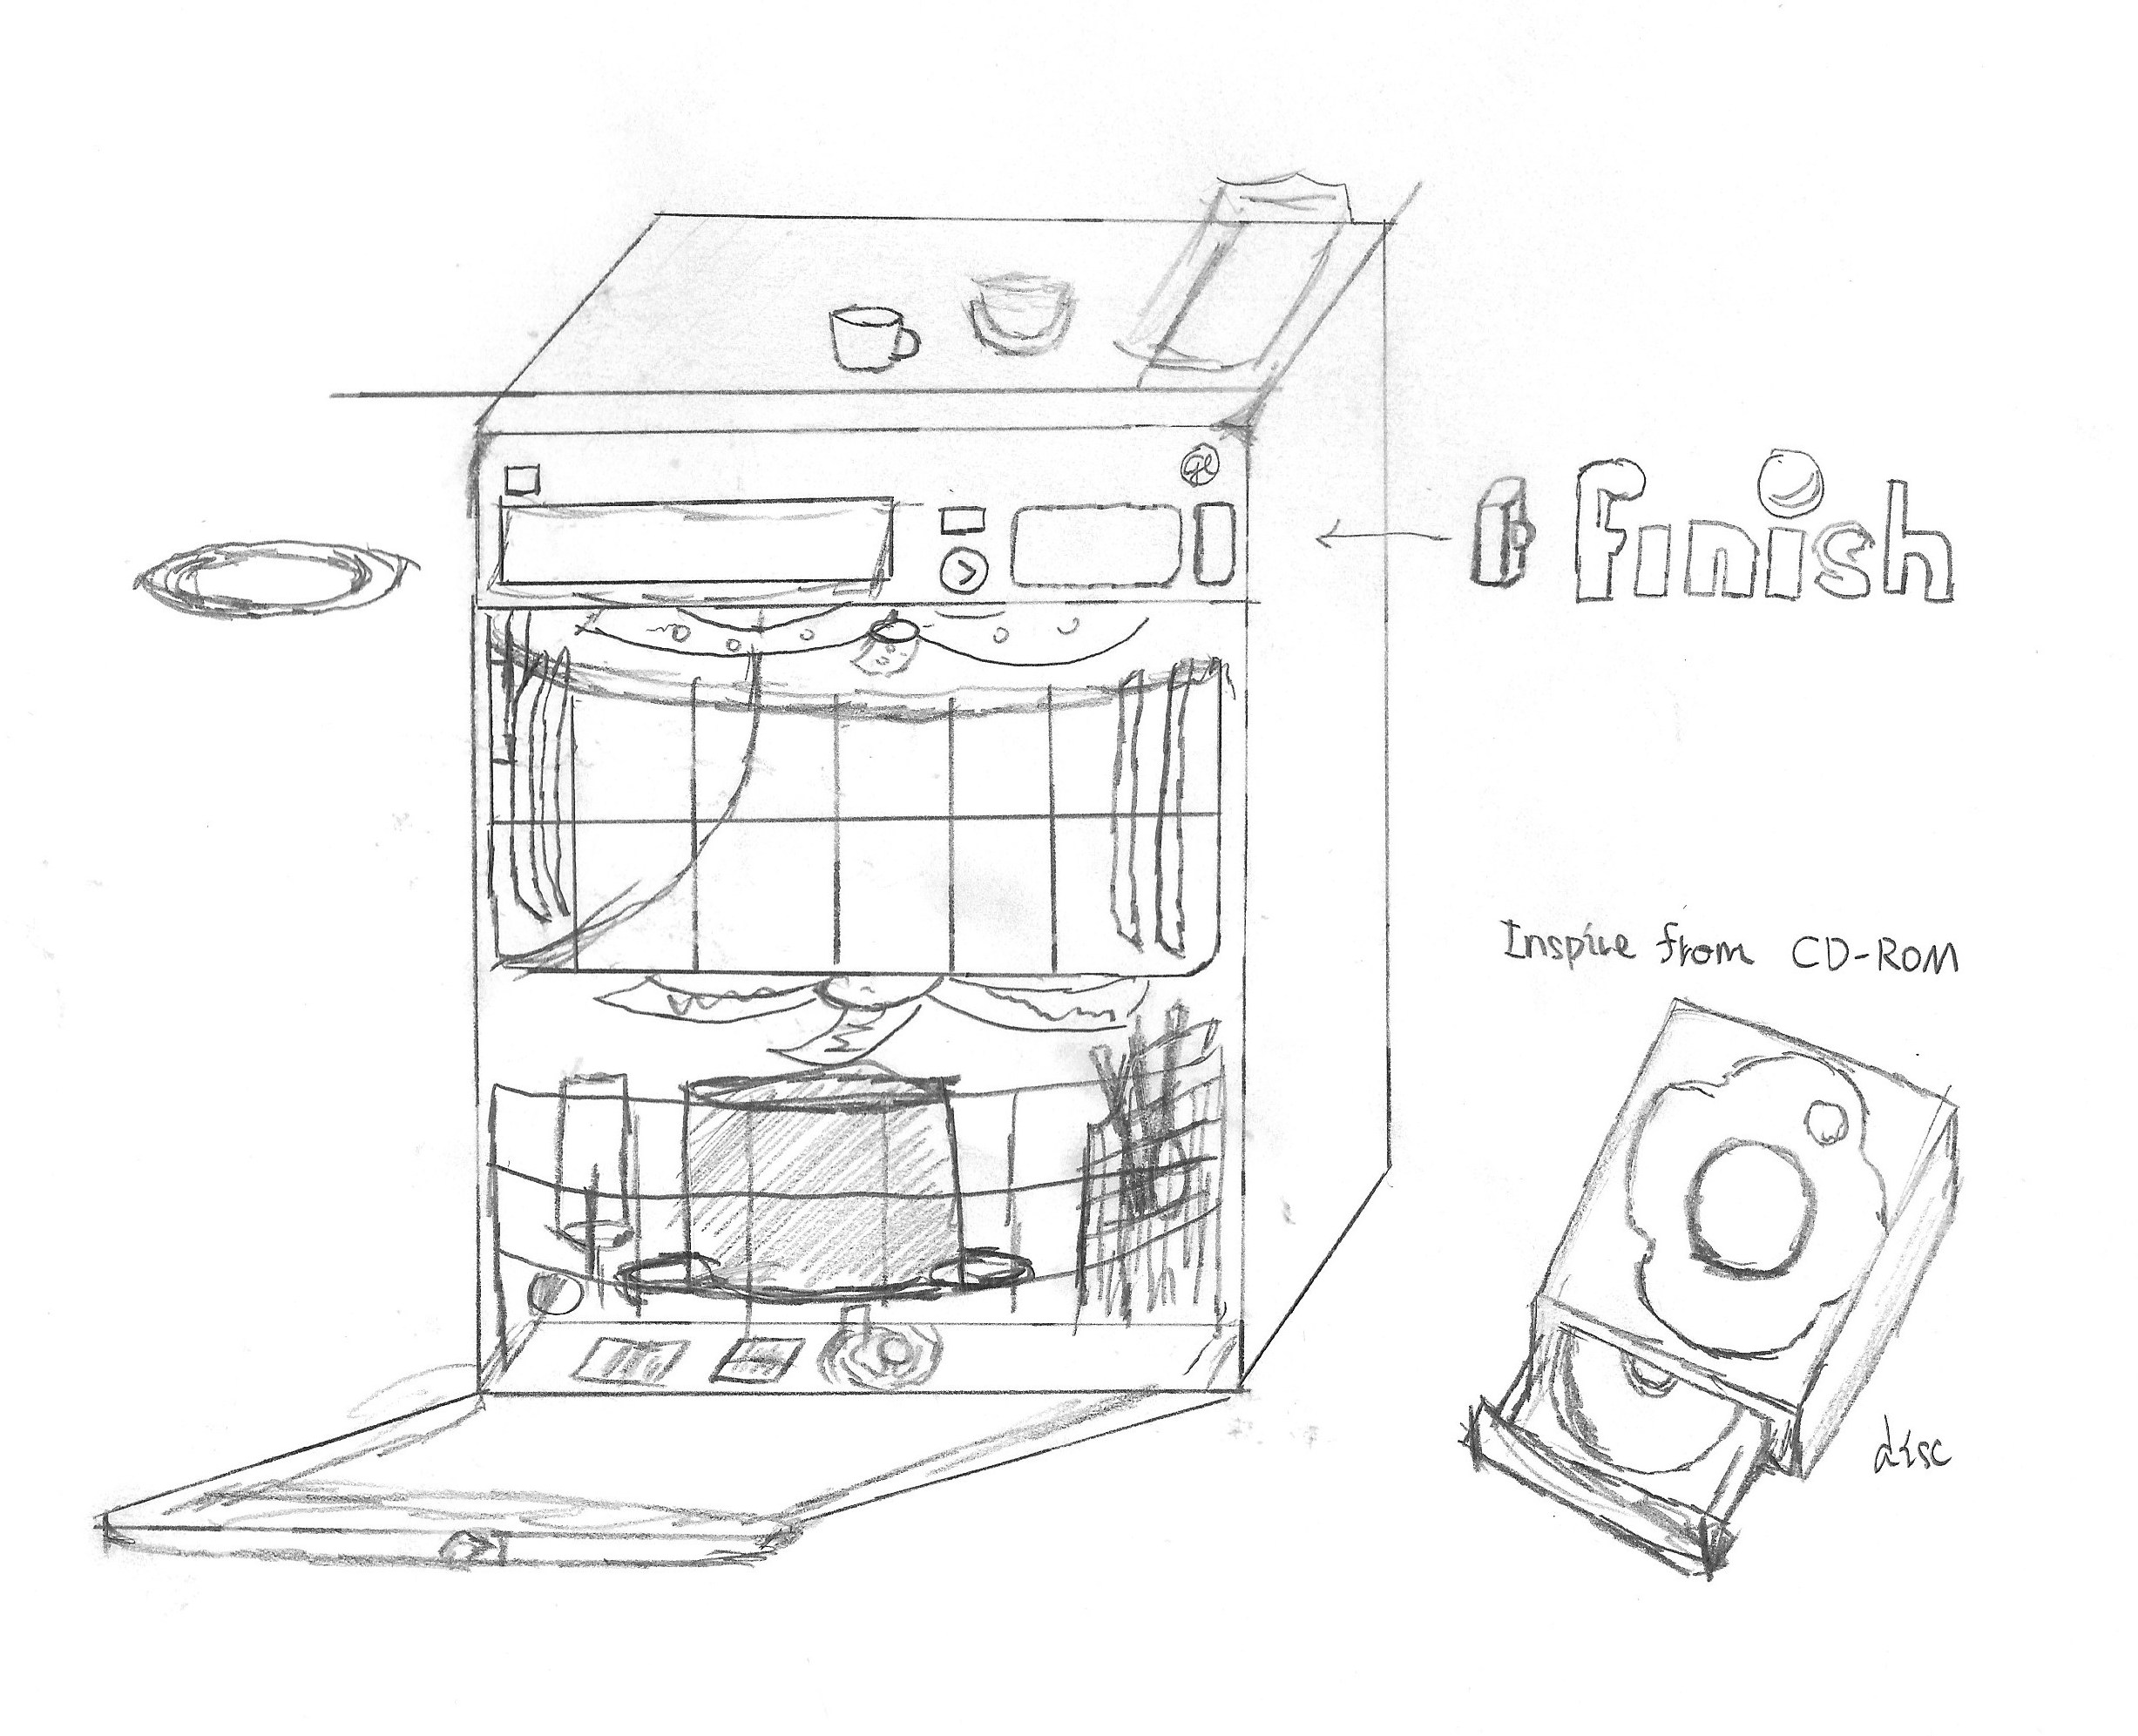 finish
Inspire from CD-ROM
disc